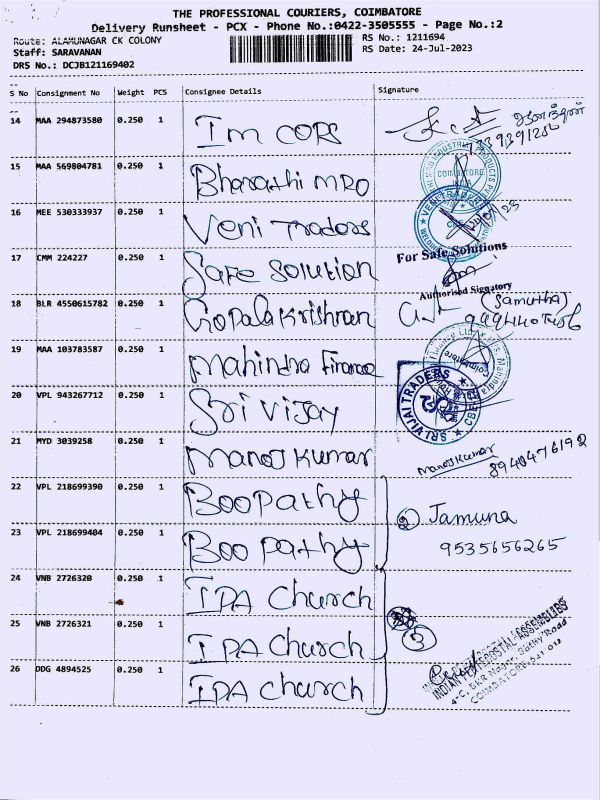 THE PROFESSIONAL COURIERS, COIMBATORE
Delivery Runsheet - PCX - Phone No.:0422-3505555 - Page No.:2
Route: ALAMUNAGAR CK COLONY
RS No.: 1211694
Staff: SARAVANAN
RS Date: 24-Jul-2023
DRS No.: DCJB121169402
S No Consignment No Weight PCS Consignee Details Signature
14 MAA 294873580 0.250 1 Im CORS
15 MAA 569804781 0.250 1 Bharathi MRO
COIMBATORE
16 MEE 530333937 0.250 1 Veni Traders
17 CMM 224227 0.250 1 Safe Solution
For Safe Solutions
Authorised Signatory
18 BLR 4550615782 0.250 1 Gopala Krishnan
(Samutha)
19 MAA 103783587 0.250 1 Mahindra Finance
Coimbatore
20 VPL 943267712 0.250 1 Sri Vijay
SRI VIJAI TRADERS
21 MYD 3039258 0.250 1 Manoj Kumar
Manoj Kumar
8940476192
22 VPL 218699390 0.250 1 Boopathy
② Jamuna
23 VPL 218699404 0.250 1 Boo pathy
9535656265
24 VNB 2726320 0.250 1 IPA Church
25 VNB 2726321 0.250 1 IPA Church
③
26 DDG 4894525 0.250 1 IPA church
INDIAN PENTECOSTAL ASSEMBLIES
COIMBATORE-641 012